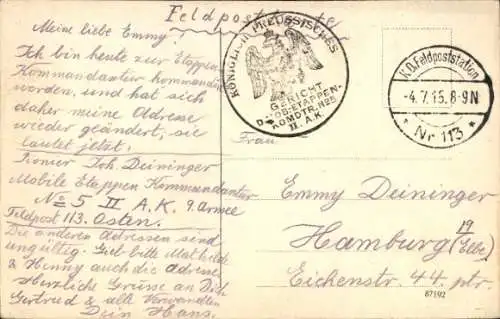 Feldpostkarte
Meine liebe Emmy!
Ich bin heute zur Etappen
Kommandantur kommandiert
worden, und hat sich
daher meine Adresse
wieder geändert, sie
lautet jetzt.
Pionier Joh. Deininger
Mobile Etappen Kommandantur
No 5 II A.K. 9. Armee
Feldpost 113. Osten.
Die anderen Adressen sind
ungültig. Gieb bitte Mathilde
& Henny auch die Adresse
Herzliche Grüsse an Dich
Gertrud & alle Verwandten
Dein Hans.
KÖNIGLICH PREUSSISCHES
GERICHT
D. MOB. ETAPPEN-
KOMDTR. No 5
II. A.K.
K.D. Feldpoststation
-4.7.15. 8-9N
* Nr 113 *
Frau
Emmy Deininger
Hamburg 19
(Elbe)
Eichenstr. 44. ptr.
87192